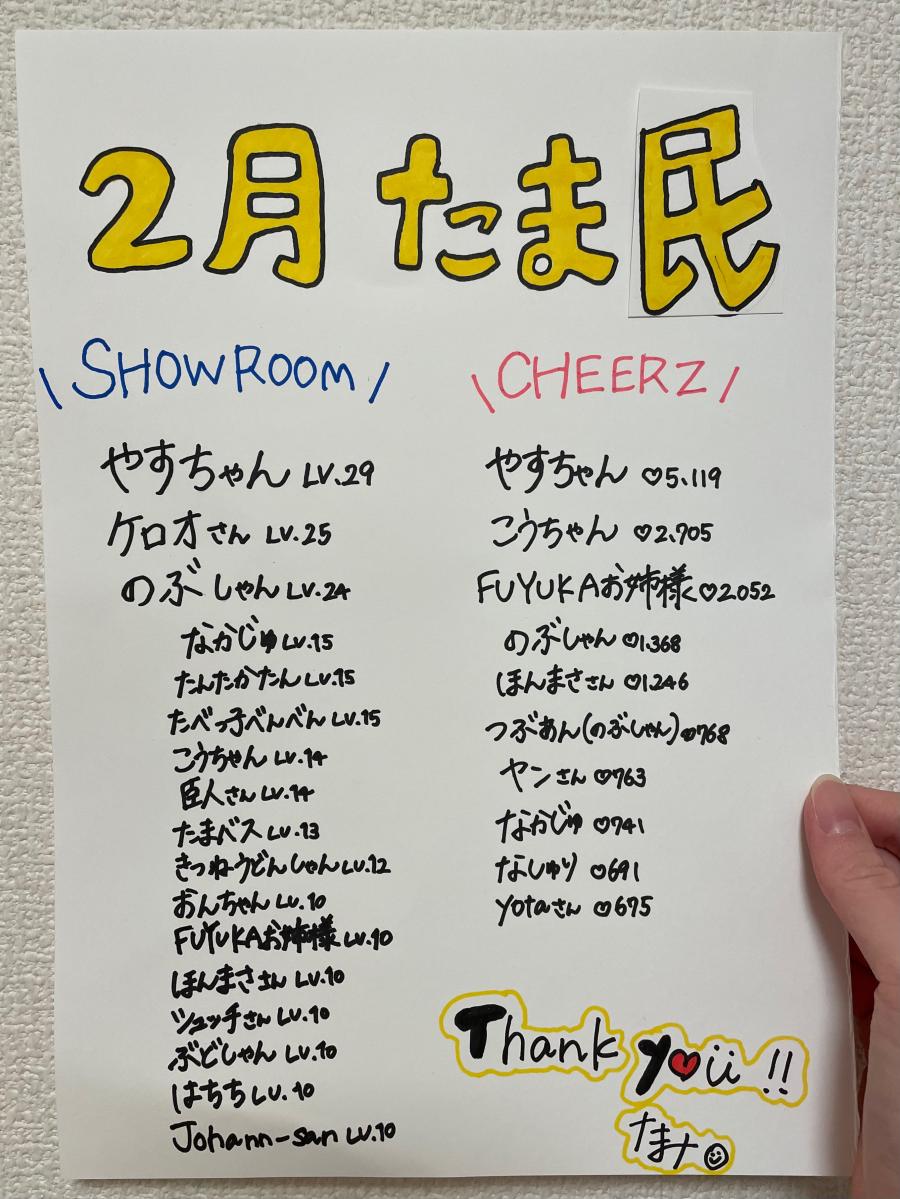 2月 たま民
\SHOWROOM/
やすちゃん LV.29
ケロオさん LV.25
のぶしゃん LV.24
なかじゅ LV.15
たんたかたん LV.15
たべっ子べんべん LV.15
こうちゃん LV.14
臣人さん LV.14
たまベス LV.13
きつねうどんしゃん LV.12
おんちゃん LV.10
FUYUKAお姉様 LV.10
ほんまささん LV.10
ツュッチさん LV.10
ぶどしゃん LV.10
はちち LV.10
Johann-san LV.10
\CHEERZ/
やすちゃん ♡5.119
こうちゃん ♡2.705
FUYUKAお姉様 ♡2052
のぶしゃん ♡1.368
ほんまささん ♡1.246
つぶあん(のぶしゃん) ♡768
ヤンさん ♡763
なかじゅ ♡741
なしゅり ♡691
yotaさん ♡675
Thank
you !!
たまナ